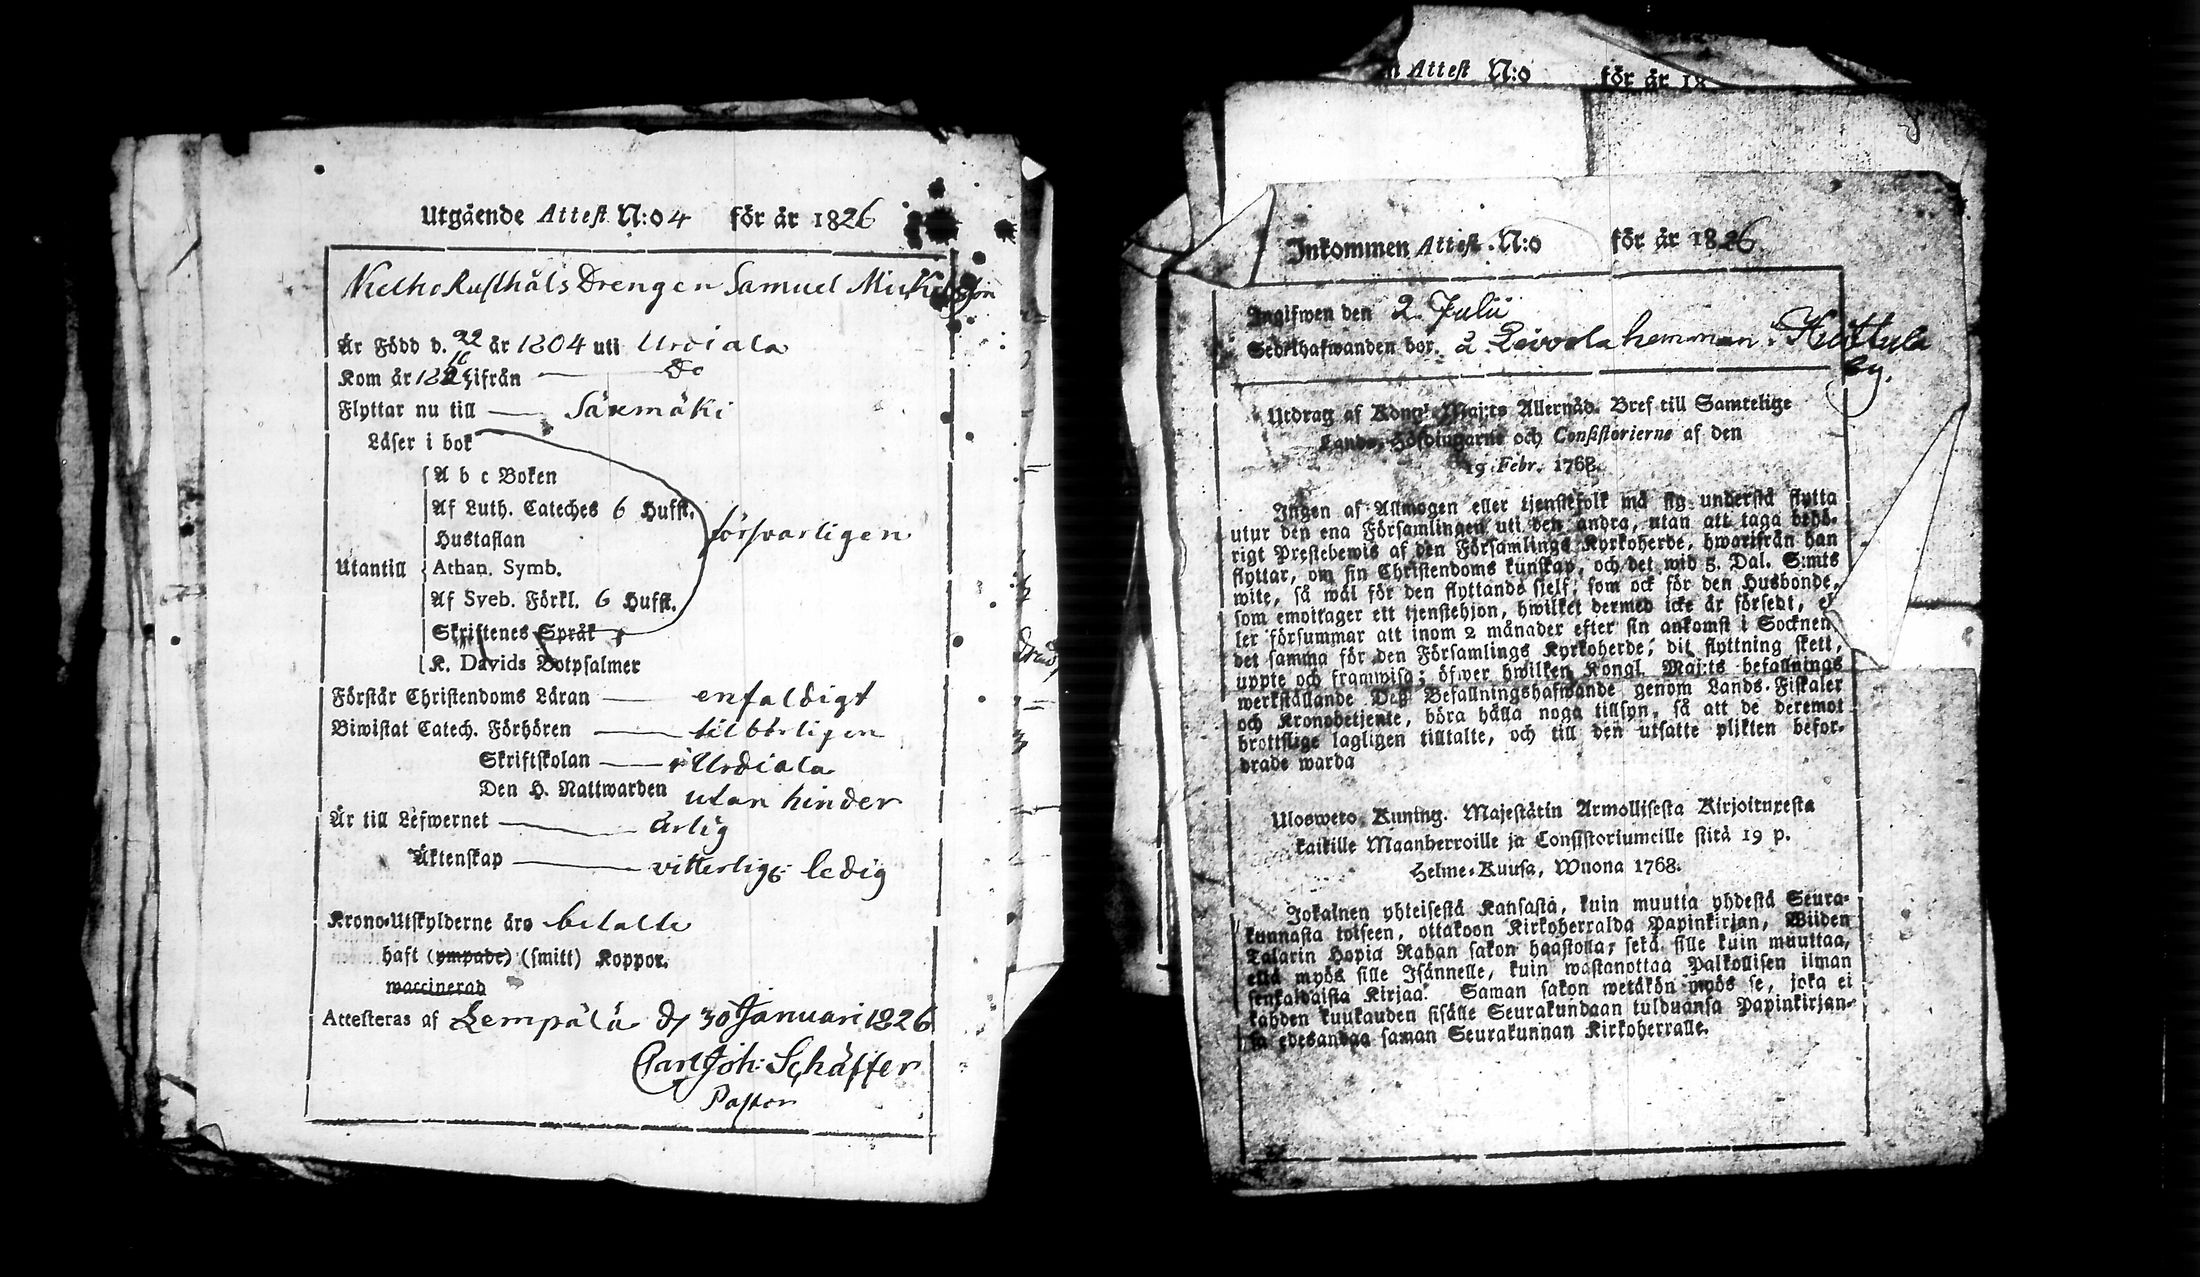 Utgående Attest N:o 4 för år 1826
Rusthåls Drengen Samuel Mickelsson
Är Född d. 22/10 år 1804 uti Urdiala
Kom år 182 ifrån Do
Flyttar nu till Säxmäki
Läser i bok
A b c Boken
Af Luth. Cateches 6 Hufst.
försvarligen
Hustaflan
Utantill Athan. Symb.
Af Sveb. Förkl. 6 Hufst.
Skriftenes Språk
K. Davids Botpsalmer
Förstår Christendoms Läran enfaldigt
Biwistat Catech. Förhören tilbörligen
Skriftskolan i Urdiala
Den H. Nattwarden utan hinder
Är till Lefwernet ärlig
Äktenskap vitterlig: ledig
Krono-Utskylderne äro betalte
haft (ympade) (smitt) Koppor.
waccinerad
Attesteras af Lempälä d. 30 Januari 1826
Carl Joh: Schäffer
Pastor
Attest N:o för år 18
Inkommen Attest N:o för år 1826
Ingifwen den 2 Julii
Sedelhafwanden bor. å hemman i Huittula
by.
Utdrag af Kongl. Maj:ts Allernåd. Bref till Samtelige
Lands-Höfdingarne och Consistorierne af den
19 Febr. 1768.
Ingen af Allmogen eller tjenstefolk må sig understå flytta
utur den ena Församlingen uti den andra, utan att taga behö-
rigt Prestebewis af den Församlings Kyrkoherde, hwarifrån han
flyttar, om sin Christendoms kunskap, och det wid 5. Dal. S:mts
wite, så wäl för den flyttande sjelf, som ock för den Husbonde,
som emottager ett tjenstehjon, hwilket dermed icke är försedt, el
ler försummar att inom 2 månader efter sin ankomst i Socknen
det samma för den Församlings Kyrkoherde, dit flyttning skett,
uppte och framwisa; öfwer hwilken Kongl. Maj:ts befallnings
werkställande Deß Befallningshafwande genom Lands-Fiskaler
och Kronobetjente, böra hålla noga tillsyn, så att de deremot
brottslige lagligen tilltalte, och till den utsatte plikten befor-
drade warda
Ulosweto Kuning. Majestätin Armollisesta Kirjoituxesta
kaikille Maanherroille ja Consistoriumeille siitä 19 p.
Helme-Kuusa, Wuona 1768.
Jokainen yhteisestä Kansasta, kuin muutta yhdestä Seura-
kunnasta toiseen, ottakoon Kirkoherralda Papinkirjan, Wiiden
Talarin Hopia Rahan sakon haastolla, sekä sille kuin muuttaa,
että myös sille Isännelle, kuin wastanottaa Palkollisen ilman
senkaldaista Kirjaa. Saman sakon wetäkön myös se, joka ei
kahden kuukauden sisälle Seurakundaan tulduansa Papinkirjan-
sa edesandaa saman Seurakunnan Kirkoherralle.